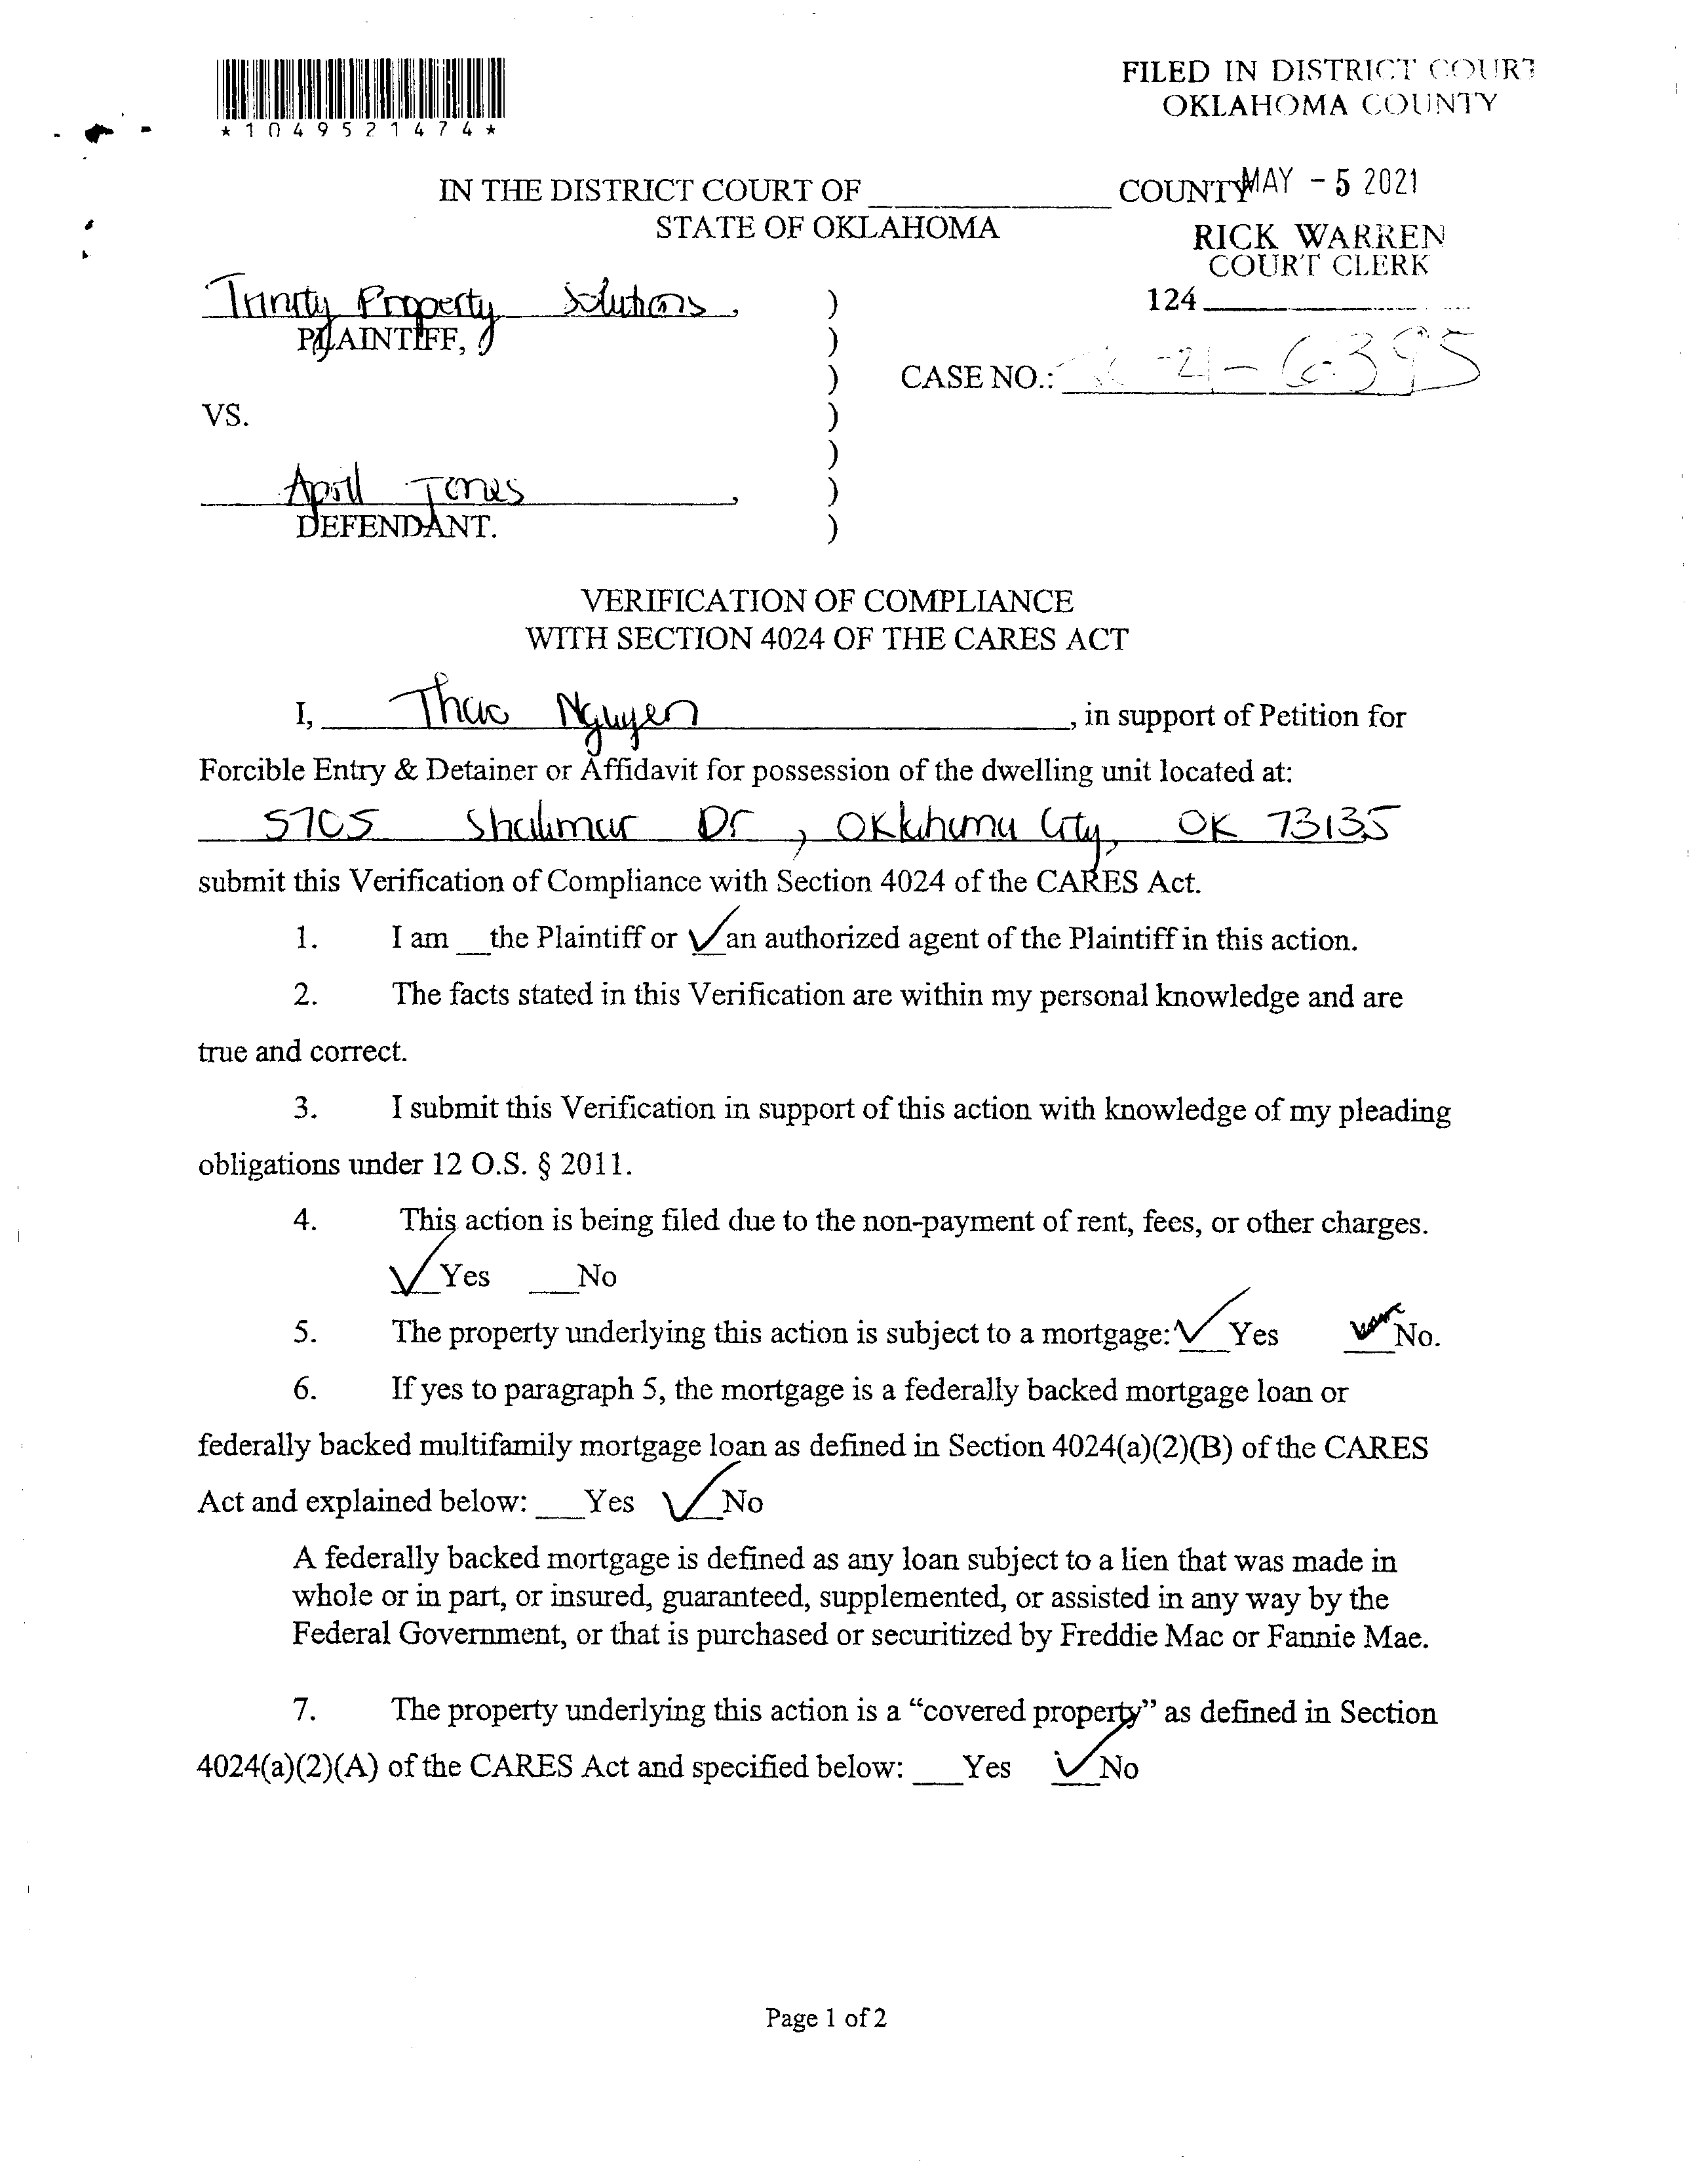 *1049521474*
FILED IN DISTRICT COURT
OKLAHOMA COUNTY
MAY - 5 2021
RICK WARREN
COURT CLERK
124
IN THE DISTRICT COURT OF ______________ COUNTY
STATE OF OKLAHOMA
Trinity Property Solutions,
PLAINTIFF,
CASE NO.: -21-6395
VS.
April Jones,
DEFENDANT.
VERIFICATION OF COMPLIANCE
WITH SECTION 4024 OF THE CARES ACT
I, Thao Nguyen, in support of Petition for
Forcible Entry & Detainer or Affidavit for possession of the dwelling unit located at:
5705 Shalimar Dr, Oklahoma City, OK 73135
submit this Verification of Compliance with Section 4024 of the CARES Act.
1. I am __the Plaintiff or ✓an authorized agent of the Plaintiff in this action.
2. The facts stated in this Verification are within my personal knowledge and are
true and correct.
3. I submit this Verification in support of this action with knowledge of my pleading
obligations under 12 O.S. § 2011.
4. This action is being filed due to the non-payment of rent, fees, or other charges.
✓Yes ___No
5. The property underlying this action is subject to a mortgage: ✓Yes ___No.
6. If yes to paragraph 5, the mortgage is a federally backed mortgage loan or
federally backed multifamily mortgage loan as defined in Section 4024(a)(2)(B) of the CARES
Act and explained below: ___Yes ✓No
A federally backed mortgage is defined as any loan subject to a lien that was made in
whole or in part, or insured, guaranteed, supplemented, or assisted in any way by the
Federal Government, or that is purchased or securitized by Freddie Mac or Fannie Mae.
7. The property underlying this action is a “covered property” as defined in Section
4024(a)(2)(A) of the CARES Act and specified below: ___Yes ✓No
Page 1 of 2